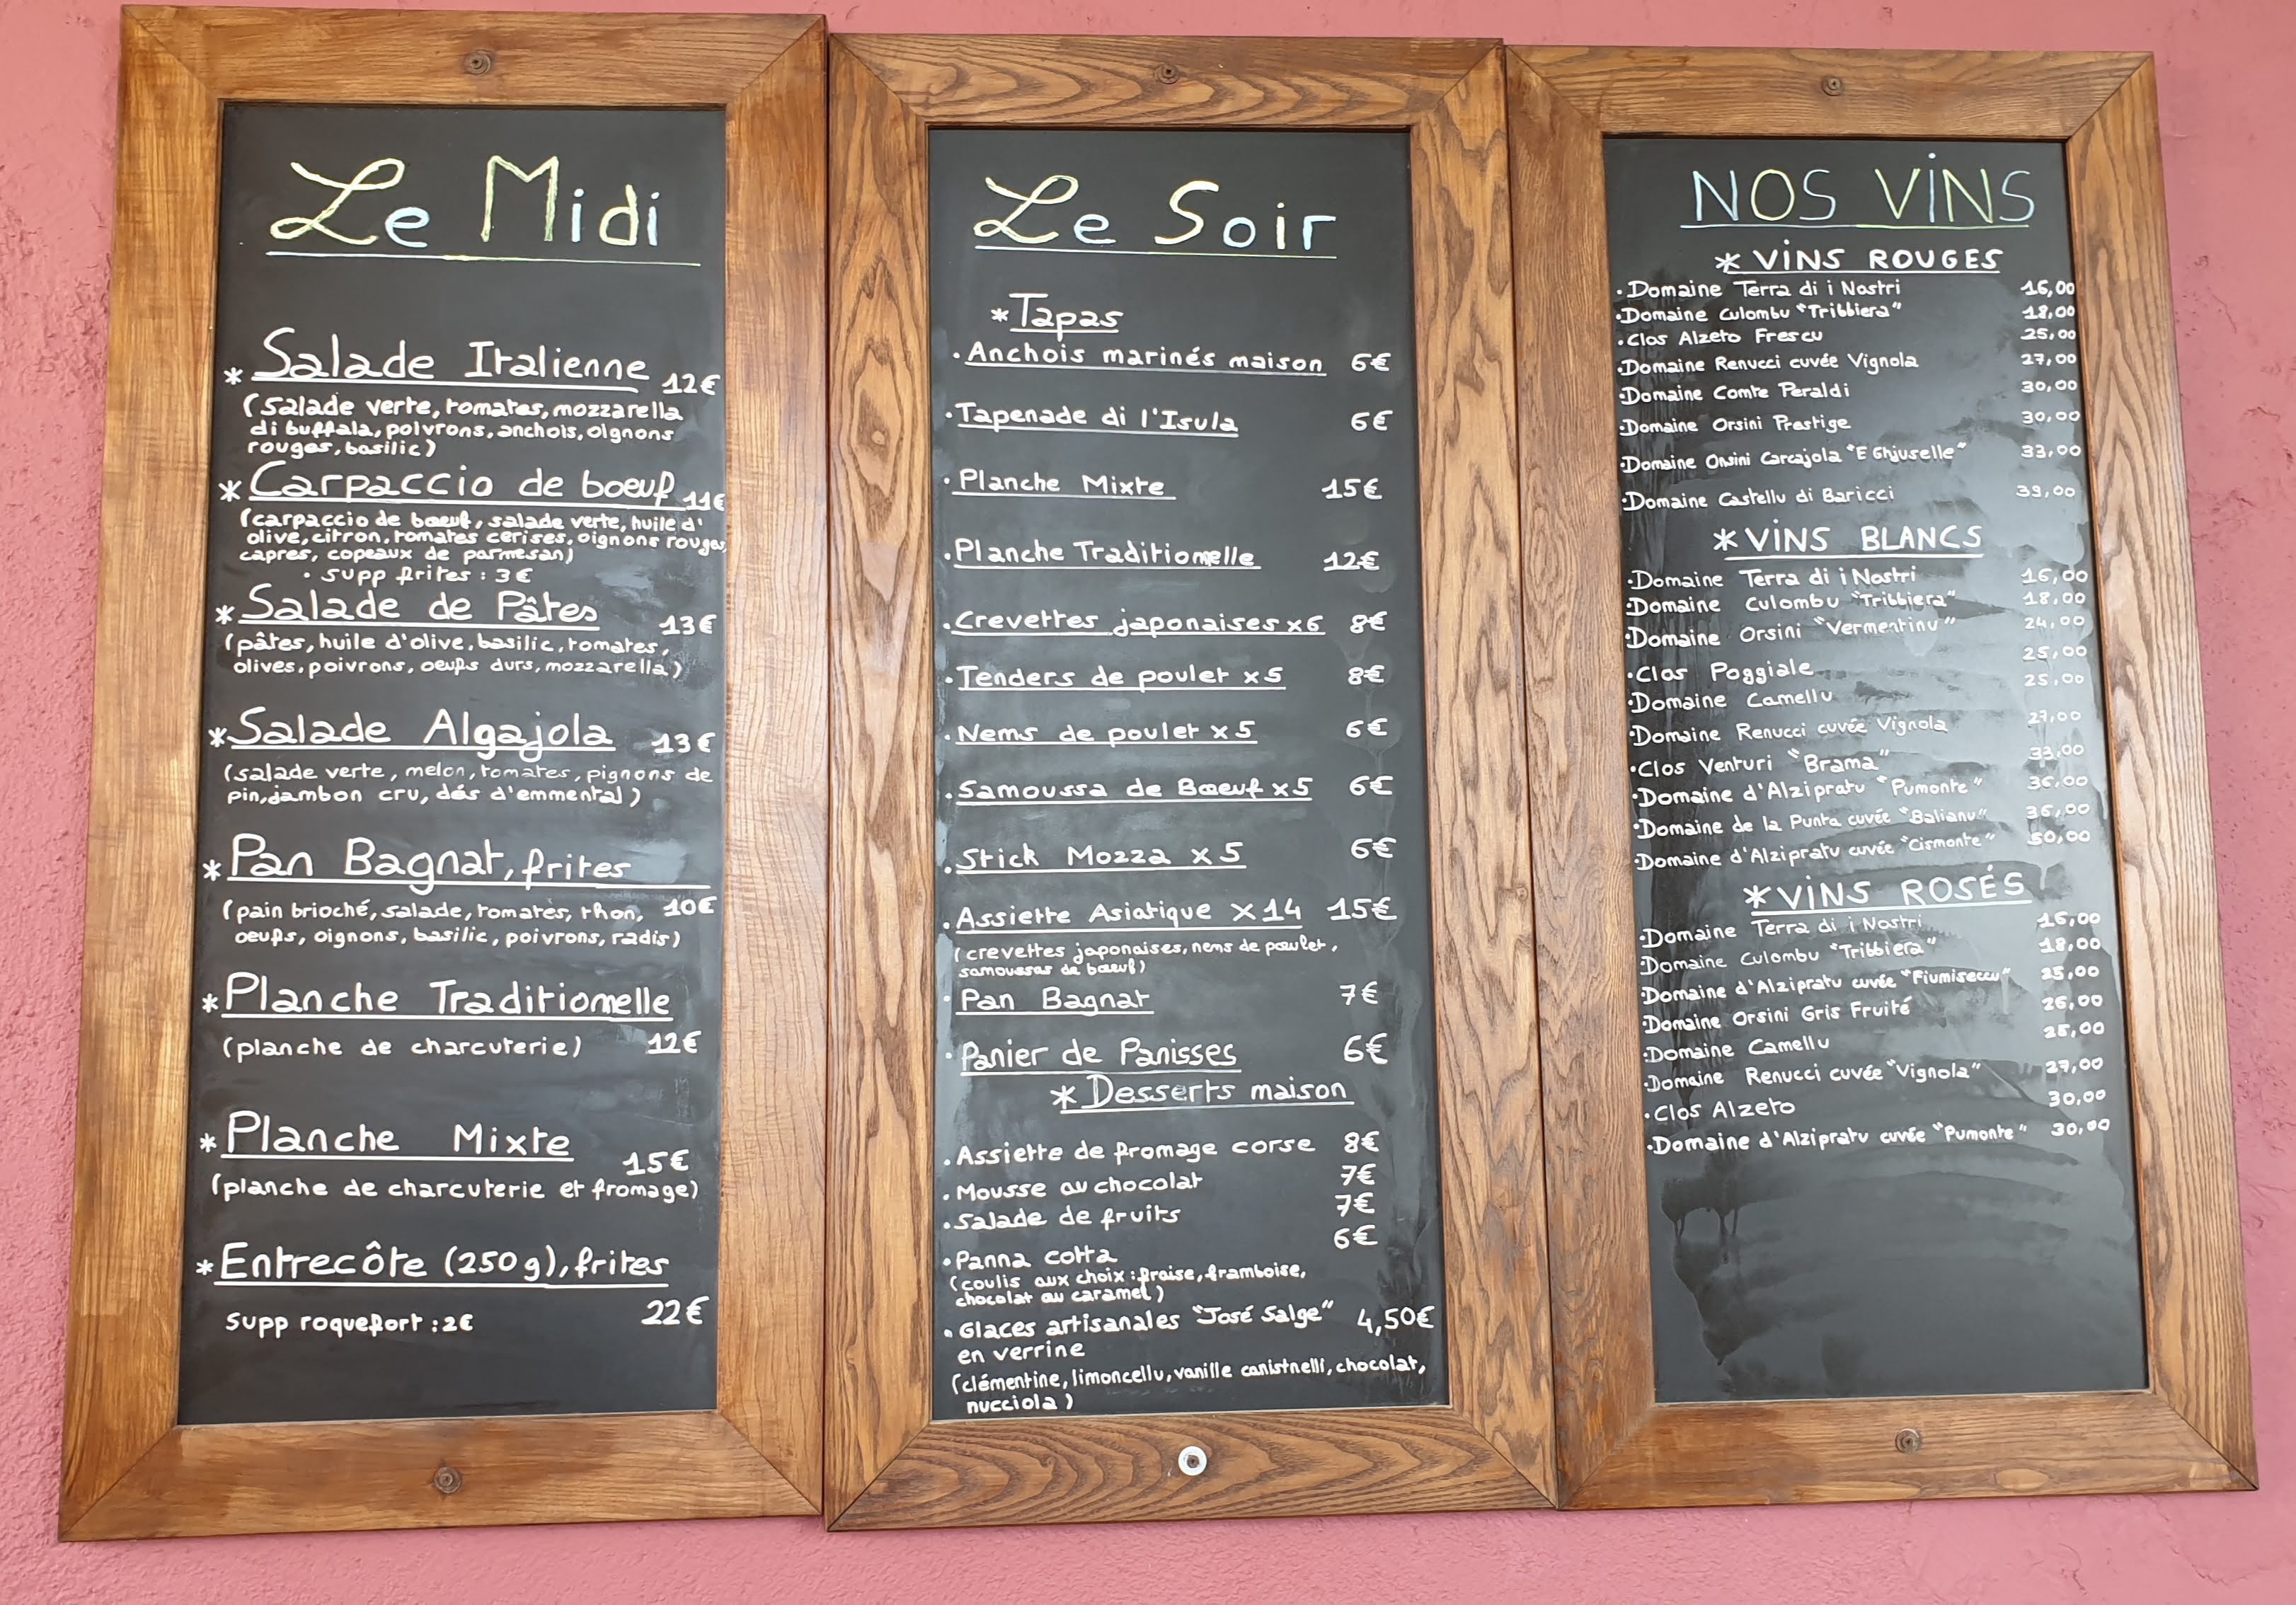 Le Midi
* Salade Italienne 12€
(salade verte, tomates, mozzarella
di buffala, poivrons, anchois, oignons
rouges, basilic)
* Carpaccio de boeuf 11€
(carpaccio de boeuf, salade verte, huile d'
olive, citron, tomates cerises, oignons rouges,
capres, copeaux de parmesan)
• supp frites : 3€
* Salade de Pâtes 13€
(pâtes, huile d'olive, basilic, tomates,
olives, poivrons, oeufs durs, mozzarella)
* Salade Algajola 13€
(salade verte, melon, tomates, pignons de
pin, jambon cru, dés d'emmental)
* Pan Bagnat, frites
(pain brioché, salade, tomates, thon, 10€
oeufs, oignons, basilic, poivrons, radis)
* Planche Traditionnelle
(planche de charcuterie) 12€
* Planche Mixte
15€
(planche de charcuterie et fromage)
* Entrecôte (250g), frites
22€
supp roquefort : 2€
Le Soir
* Tapas
• Anchois marinés maison 6€
• Tapenade di l'Isula 6€
• Planche Mixte 15€
• Planche Traditionnelle 12€
• Crevettes japonaises x6 8€
• Tenders de poulet x5 8€
• Nems de poulet x5 6€
• Samoussa de Boeuf x5 6€
• Stick Mozza x5 6€
• Assiette Asiatique x14 15€
(crevettes japonaises, nems de poulet,
samoussas de boeuf)
• Pan Bagnat 7€
• Panier de Panisses 6€
* Desserts maison
• Assiette de fromage corse 8€
• Mousse au chocolat 7€
• Salade de fruits 7€
• Panna cotta 6€
(coulis aux choix : fraise, framboise,
chocolat au caramel)
• Glaces artisanales "José Salge" 4,50€
en verrine
(clémentine, limoncellu, vanille canistrelli, chocolat,
nucciola)
NOS VINS
* VINS ROUGES
• Domaine Terra di i Nostri 16,00
• Domaine Culombu "Tribbiera" 18,00
• Clos Alzeto Frescu 25,00
• Domaine Renucci cuvée Vignola 27,00
• Domaine Comte Peraldi 30,00
• Domaine Orsini Prestige 30,00
• Domaine Orsini Carcajola "E Ghjuselle" 33,00
• Domaine Castellu di Baricci 39,00
* VINS BLANCS
• Domaine Terra di i Nostri 16,00
• Domaine Culombu "Tribbiera" 18,00
• Domaine Orsini "Vermentinu" 24,00
• Clos Poggiale 25,00
• Domaine Camellu 25,00
• Domaine Renucci cuvée Vignola 27,00
• Clos Venturi "Brama" 33,00
• Domaine d'Alzipratu "Pumonte" 36,00
• Domaine de la Punta cuvée "Balianu" 36,00
• Domaine d'Alzipratu cuvée "Cismonte" 50,00
* VINS ROSÉS
• Domaine Terra di i Nostri 16,00
• Domaine Culombu "Tribbiera" 18,00
• Domaine d'Alzipratu cuvée "Fiumiseccu" 25,00
• Domaine Orsini Gris Fruité 26,00
• Domaine Camellu 25,00
• Domaine Renucci cuvée "Vignola" 27,00
• Clos Alzeto 30,00
• Domaine d'Alzipratu cuvée "Pumonte" 30,00